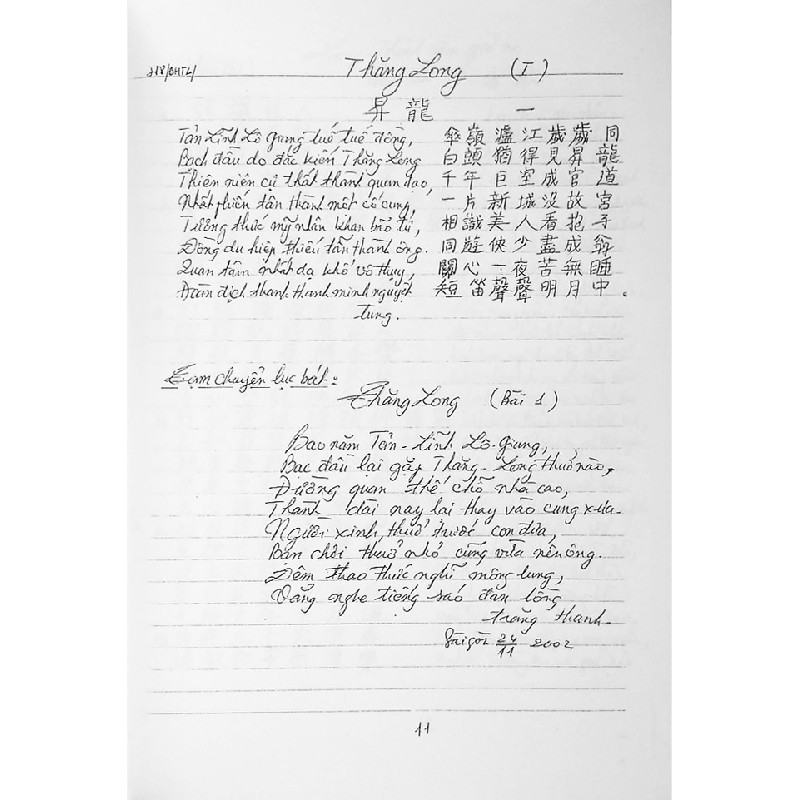 Thăng Long (I)
昇龍 一
Tản Lĩnh Lô Giang tuế tuế đồng, 傘嶺瀘江歲歲同
Bạch đầu do đắc kiến Thăng Long 白頭猶得見昇龍
Thiên niên cự thất thành quan đạo, 千年巨室成官道
Nhất phiến tân thành một cố cung, 一片新城沒故宮
Tương thức mỹ nhân khan bão tử, 相識美人看抱子
Đồng du hiệp thiếu tẫn thành ông. 同遊俠少盡成翁
Quan tâm nhất dạ khổ vô thụy, 關心一夜苦無睡
Đoản địch thanh thanh minh nguyệt 短笛聲聲明月中。
trung.
Tạm chuyển lục bát:
Thăng Long (Bài 1)
Bao năm Tản-Lĩnh Lô-Giang,
Bạc đầu lại gặp Thăng-Long thuở nào,
Đường quan thế chỗ nhà cao,
Thành đài nay lại thay vào cung xưa.
Người xinh thuở trước con đưa,
Bạn chơi thuở nhỏ cũng vừa nên ông.
Đêm thao thức nghĩ mông lung,
Vẳng nghe tiếng sáo đan lồng
trăng thanh.
Sàigòn 24/11 2002
11